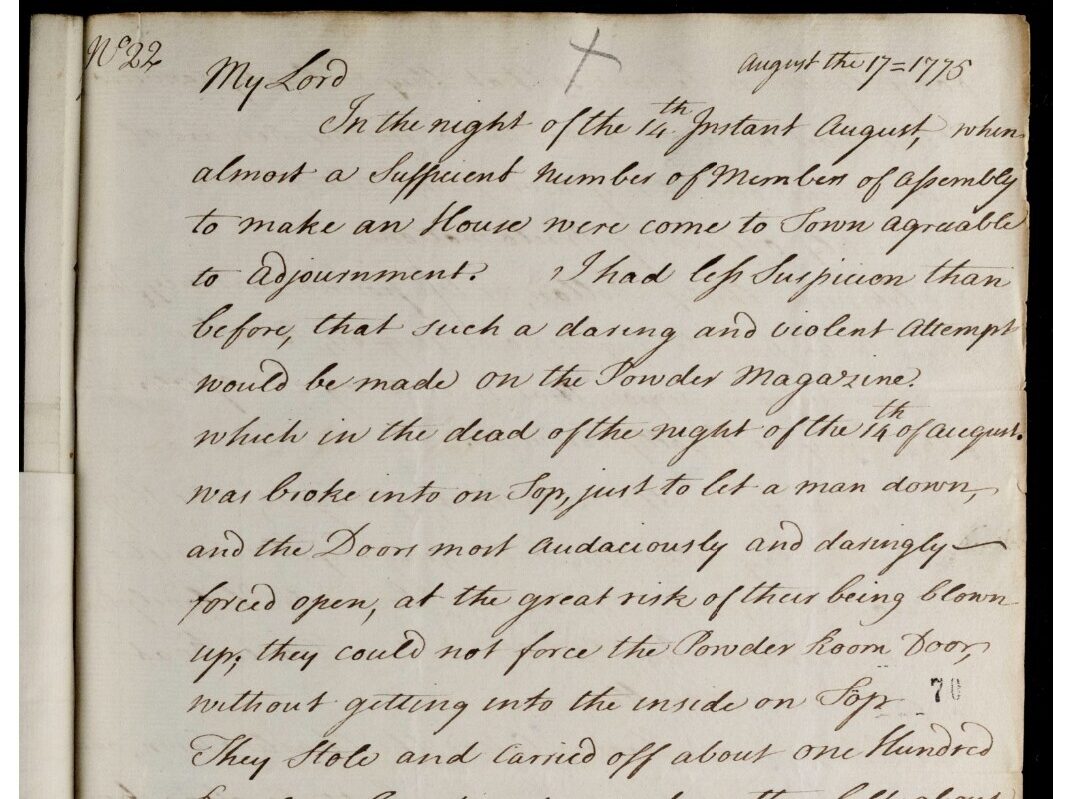 No 22
August the 17=1775
My Lord
In the night of the 14th Instant August, when
almost a Sufficient Number of Members of Assembly
to make an House were come to Town agreeable
to Adjournment. I had less Suspicion than
before, that such a daring and violent Attempt
would be made on the Powder Magazine.
which in the dead of the night of the 14th of August.
was broke into on Top, just to let a man down,
and the Doors most Audaciously and daringly
forced open, at the great risk of their being blown
up; they could not force the Powder Room Door,
without getting into the inside on Top
70
They Stole and Carried off about one Hundred